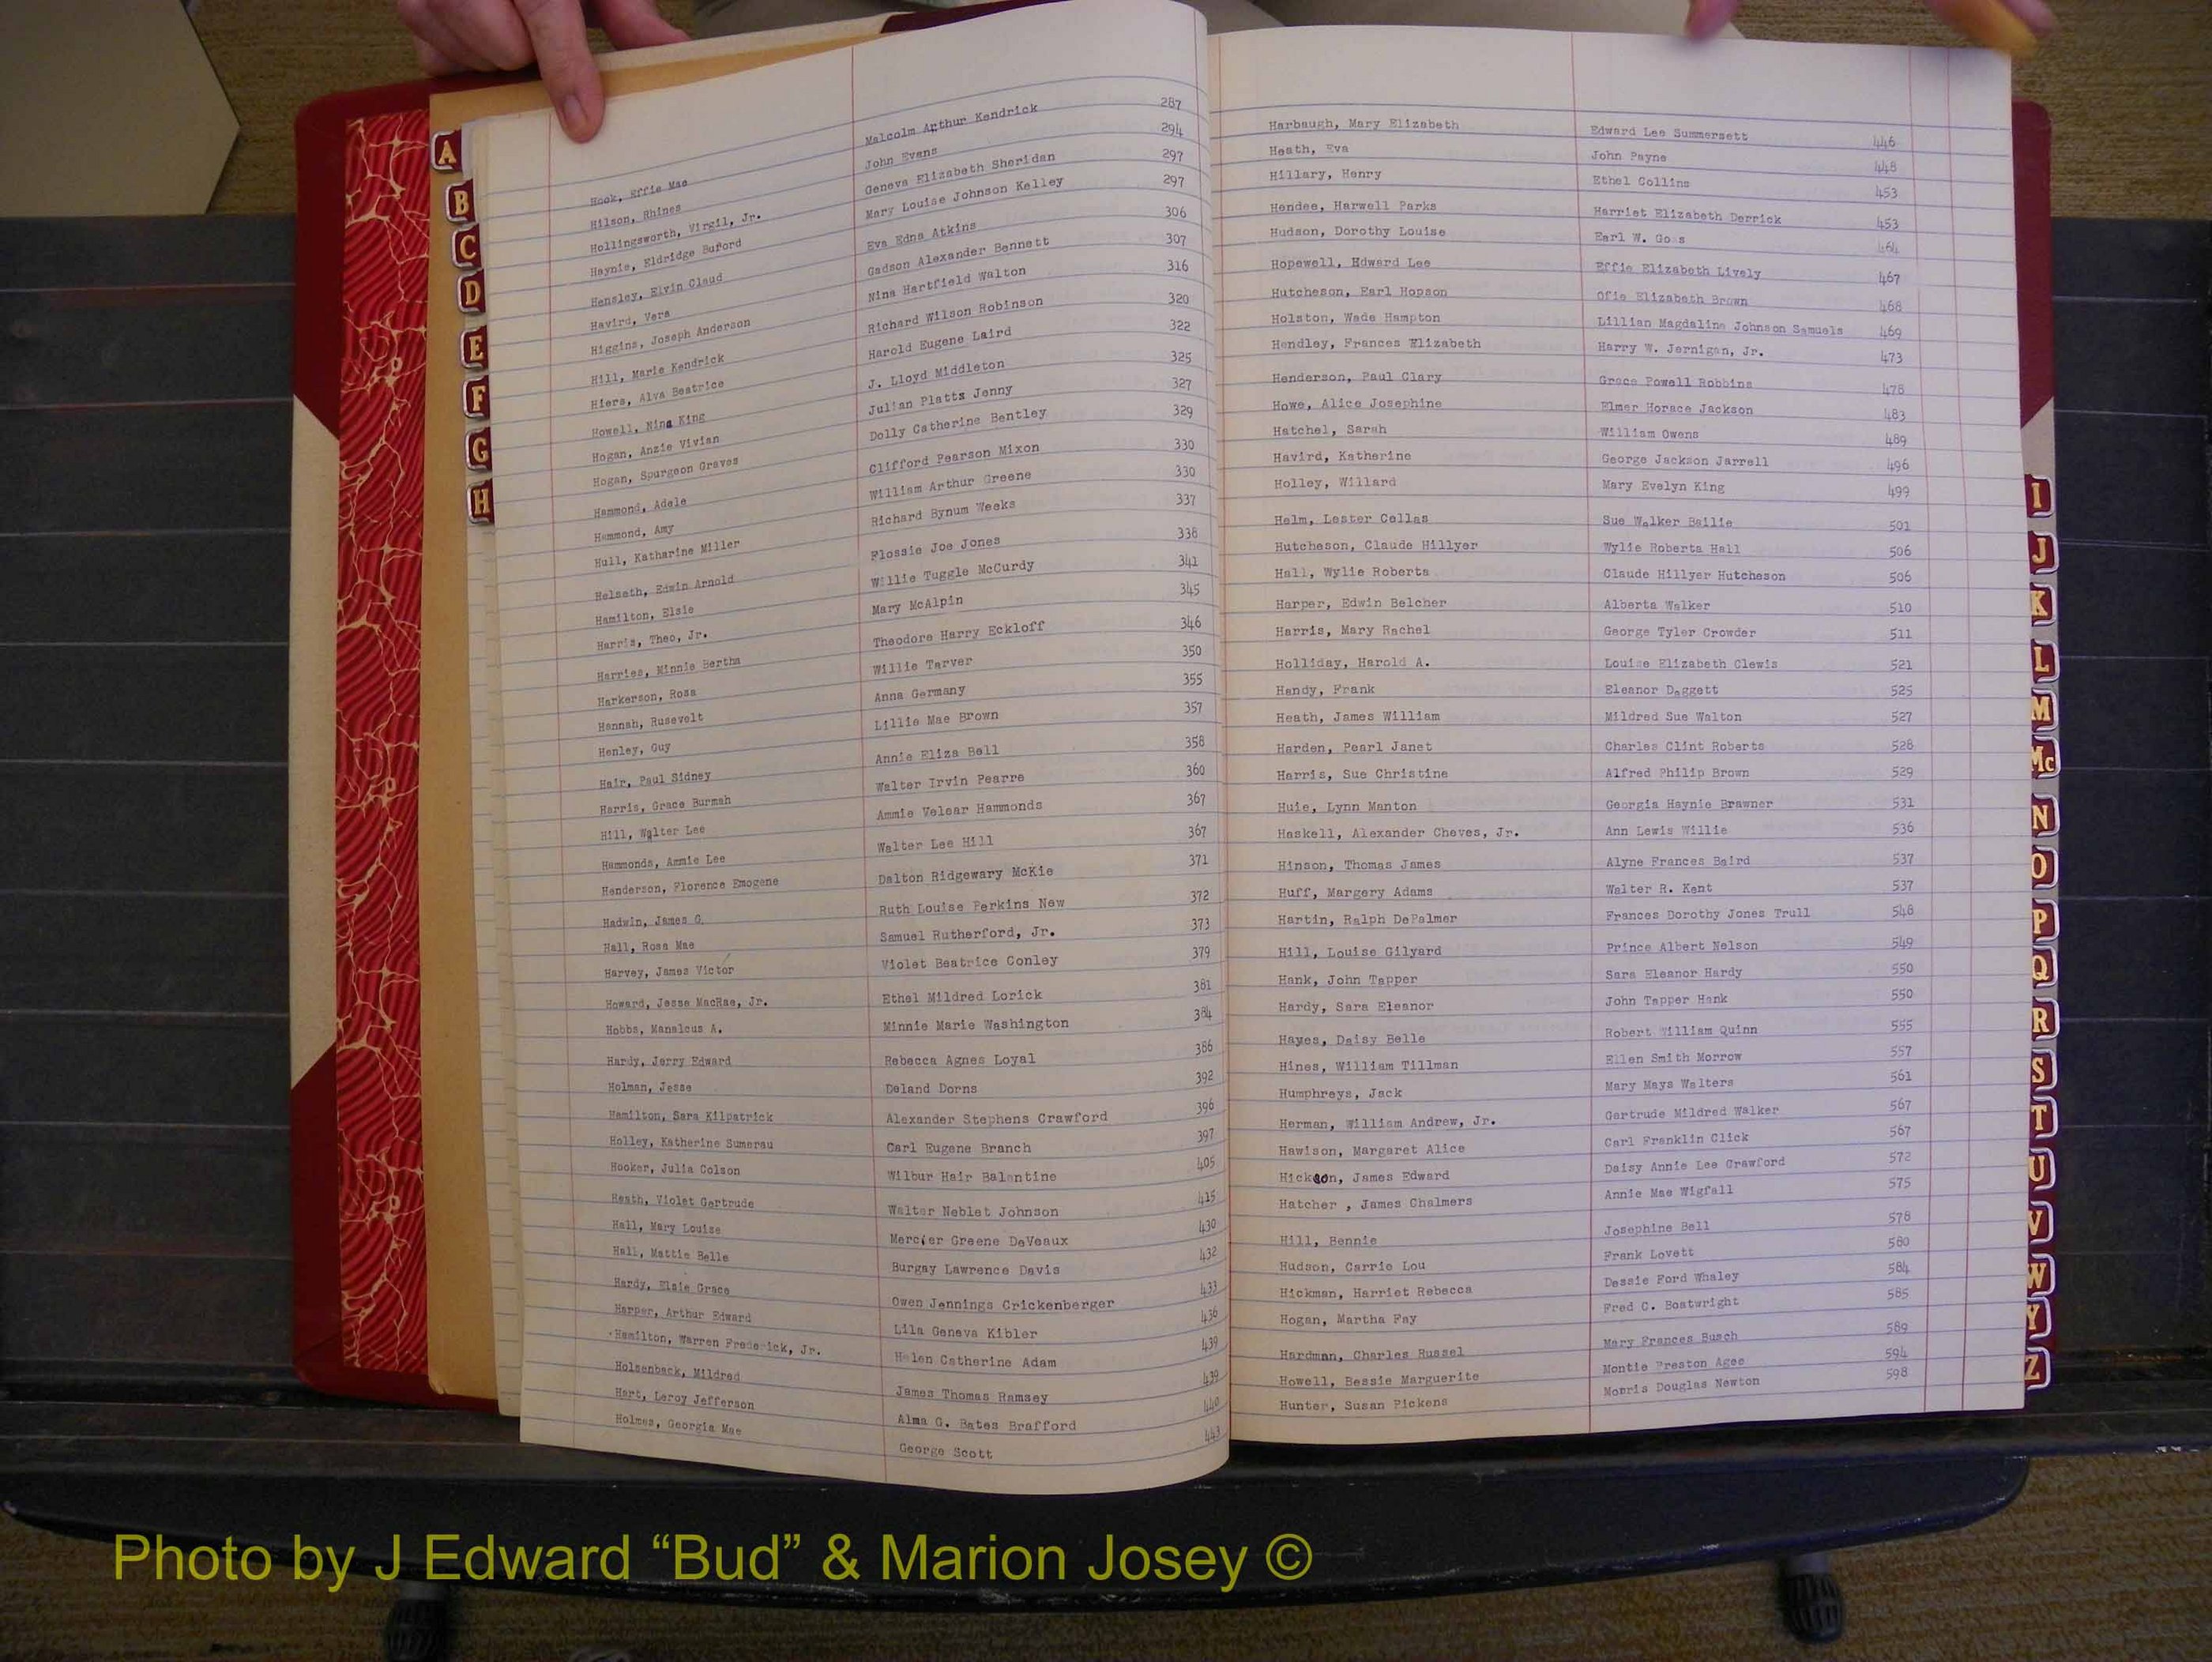 Hook, Effie Mae Malcolm Arthur Kendrick 287
Hilson, Rhines John Evans 294
Hollingsworth, Virgil, Jr. Geneva Elizabeth Sheridan 297
Haynie, Eldridge Buford Mary Louise Johnson Kelley 297
Hensley, Elvin Claud Eva Edna Atkins 306
Havird, Vera Gadson Alexander Bennett 307
Higgins, Joseph Anderson Nina Hartfield Walton 316
Hill, Marie Kendrick Richard Wilson Robinson 320
Hiers, Alva Beatrice Harold Eugene Laird 322
Howell, Nina King J. Lloyd Middleton 325
Hogan, Anzie Vivian Julian Platts Jenny 327
Hogan, Spurgeon Graves Dolly Catherine Bentley 329
Hammond, Adele Clifford Pearson Mixon 330
Hammond, Amy William Arthur Greene 330
Hull, Katharine Miller Richard Bynum Weeks 337
Helseth, Edwin Arnold Flossie Joe Jones 338
Hamilton, Elsie Willie Tuggle McCurdy 341
Harris, Theo, Jr. Mary McAlpin 345
Harries, Minnie Bertha Theodore Harry Eckloff 346
Harkerson, Rosa Willie Tarver 350
Hannah, Rusevelt Anna Germany 355
Henley, Guy Lillie Mae Brown 357
Hair, Paul Sidney Annie Eliza Bell 358
Harris, Grace Burmah Walter Irvin Pearre 360
Hill, Walter Lee Ammie Velear Hammonds 367
Hammonds, Ammie Lee Walter Lee Hill 367
Henderson, Florence Emogene Dalton Ridgewary McKie 371
Hadwin, James G. Ruth Louise Perkins New 372
Hall, Rosa Mae Samuel Rutherford, Jr. 373
Harvey, James Victor Violet Beatrice Conley 379
Howard, Jesse MacRae, Jr. Ethel Mildred Lorick 381
Hobbs, Manalcus A. Minnie Marie Washington 384
Hardy, Jerry Edward Rebecca Agnes Loyal 386
Holman, Jesse Deland Dorns 392
Hamilton, Sara Kilpatrick Alexander Stephens Crawford 396
Holley, Katherine Sumerau Carl Eugene Branch 397
Hooker, Julia Colson Wilbur Hair Balentine 405
Heath, Violet Gertrude Walter Neblet Johnson 415
Hall, Mary Louise Mercier Greene DeVeaux 430
Hall, Mattie Belle Burgay Lawrence Davis 432
Hardy, Elsie Grace Owen Jennings Crickenberger 433
Harper, Arthur Edward Lila Geneva Kibler 436
Hamilton, Warren Frederick, Jr. Helen Catherine Adam 439
Holsenback, Mildred James Thomas Ramsey 439
Hart, Leroy Jefferson Alma G. Bates Brafford 440
Holmes, Georgia Mae George Scott 443
Harbaugh, Mary Elizabeth Edward Lee Summersett 446
Heath, Eva John Payne 448
Hillary, Henry Ethel Collins 453
Hendee, Harwell Parks Harriet Elizabeth Derrick 453
Hudson, Dorothy Louise Earl W. 464
Hopewell, Edward Lee Effie Elizabeth Lively 467
Hutcheson, Earl Hopson Ofie Elizabeth Brown 468
Holston, Wade Hampton Lillian Magdaline Johnson Samuels 469
Hendley, Frances Elizabeth Harry W. Jernigan, Jr. 473
Henderson, Paul Clary Grace Powell Robbins 478
Howe, Alice Josephine Elmer Horace Jackson 483
Hatchel, Sarah William Owens 489
Havird, Katherine George Jackson Jarrell 496
Holley, Willard Mary Evelyn King 499
Helm, Lester Cellas Sue Walker Bailie 501
Hutcheson, Claude Hillyer Wylie Roberta Hall 506
Hall, Wylie Roberta Claude Hillyer Hutcheson 506
Harper, Edwin Belcher Alberta Walker 510
Harris, Mary Rachel George Tyler Crowder 511
Holliday, Harold A. Louise Elizabeth Clewis 521
Handy, Frank Eleanor Daggett 525
Heath, James William Mildred Sue Walton 527
Harden, Pearl Janet Charles Clint Roberts 528
Harris, Sue Christine Alfred Philip Brown 529
Huie, Lynn Manton Georgia Haynie Brawner 531
Haskell, Alexander Cheves, Jr. Ann Lewis Willie 536
Hinson, Thomas James Alyne Frances Baird 537
Huff, Margery Adams Walter R. Kent 537
Hartin, Ralph DePalmer Frances Dorothy Jones Trull 548
Hill, Louise Gilyard Prince Albert Nelson 549
Hank, John Tapper Sara Eleanor Hardy 550
Hardy, Sara Eleanor John Tapper Hank 550
Hayes, Daisy Belle Robert William Quinn 555
Hines, William Tillman Ellen Smith Morrow 557
Humphreys, Jack Mary Mays Walters 561
Herman, William Andrew, Jr. Gertrude Mildred Walker 567
Hawison, Margaret Alice Carl Franklin Click 567
Hickson, James Edward Daisy Annie Lee Crawford 572
Hatcher , James Chalmers Annie Mae Wigfall 575
Hill, Bennie Josephine Bell 578
Hudson, Carrie Lou Frank Lovett 580
Hickman, Harriet Rebecca Dessie Ford Whaley 584
Hogan, Martha Fay Fred C. Boatwright 585
Hardman, Charles Russel Mary Frances Busch 589
Howell, Bessie Marguerite Montie Preston Agee 594
Hunter, Susan Pickens Morris Douglas Newton 598
A
B
C
D
E
F
G
H
I
J
K
L
M
Mc
N
O
P
Q
R
S
T
U
V
W
Y
Z
Photo by J Edward “Bud” & Marion Josey ©